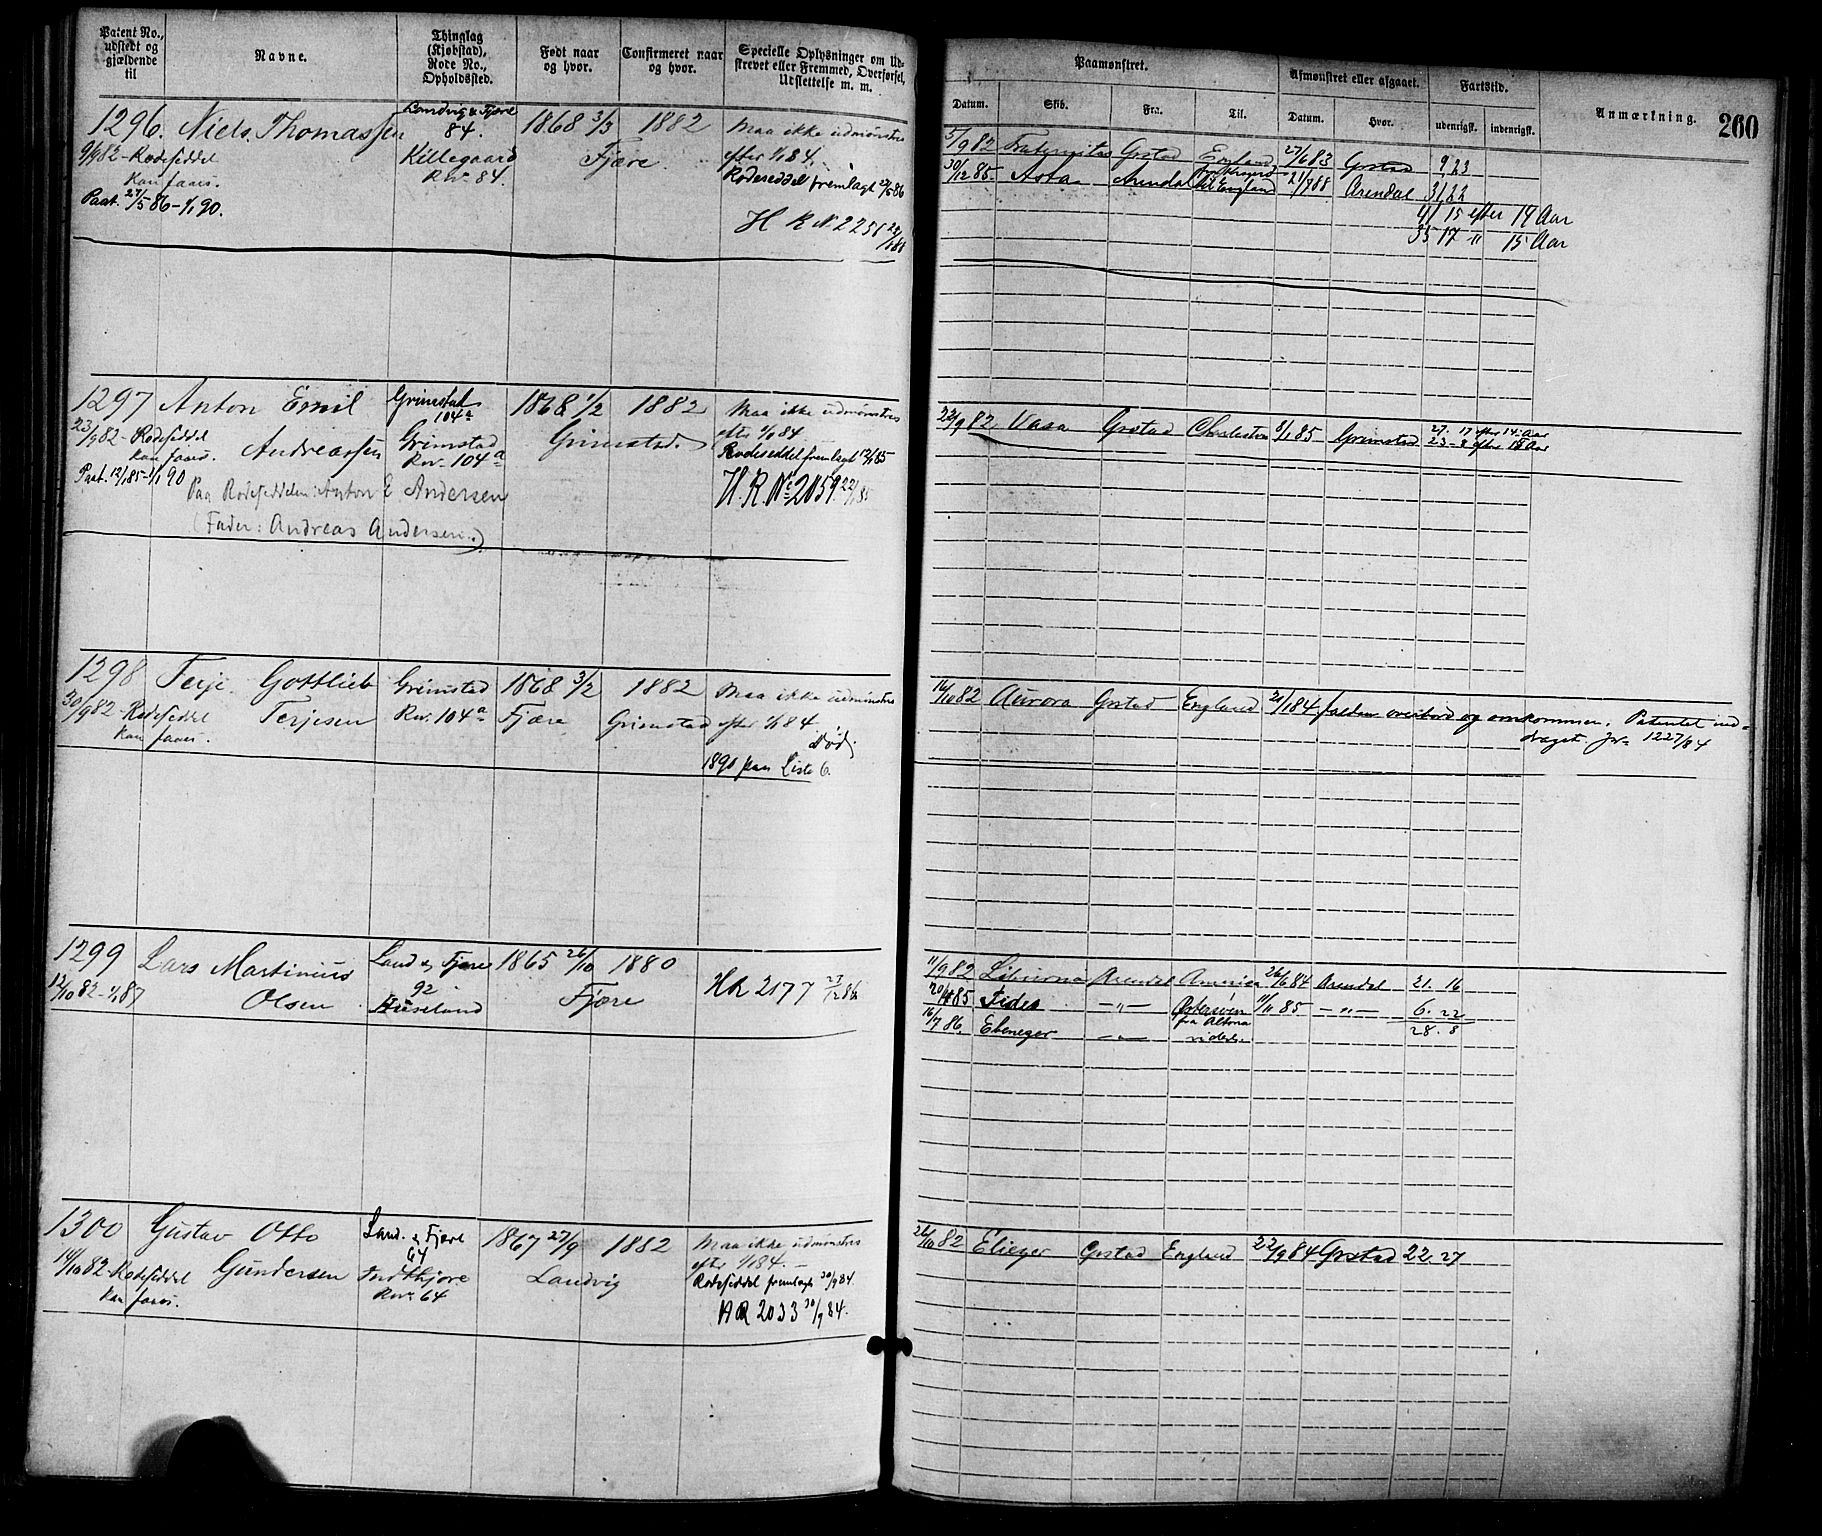 Patent No., udstedt og gjældende til
Navne.
Thinglag (Kjøbstad), Rode No., Opholdssted.
Født naar og hvor.
Confirmeret naar og hvor.
Specielle Oplysninger om Udskrevet eller Fremmed, Overførsel, Udslettelse m. m.
Paamønstret.
Afmønstret eller afgaaet.
Fartstid.
Anmærkning.
260
Datum.
Skib.
Fra.
Til.
Datum.
Hvor.
udenrigsk.
indenrigsk.
1296. Niels Thomassen
Landvig & Fjære
84.
1868 3/3 1882
Maa ikke udmønstres
9/9 82 - Rodeseddel
Killegaard
Fjære
efter 1/1 84.
kan faaes.
Rnr. 84.
Rodeseddel fremlagt 27/5 86
Paat. 27/5 86 - 1/1 90.
H R N 2251
5/9 82 Fraternitas Grstad England 27/6 83 Grstad 9 23
30/12 85 Asta Arendal til England 21/7 88 Arendal 31 22
41 15 efter 14 Aar
35 17 " 15 Aar
1297 Anton Emil
Grimstad
104a
1868 1/2 1882
Maa ikke udmønstres
23/9 82 - Rodeseddel
Andreassen
Grimstad
Grimstad
efter 1/1 84
kan faaes.
Rnr. 104a
Rodeseddel fremlagt 12/1 85
Paat. 12/1 85 - 1/1 90
Paa Rodeseddelen: Anton E Andersen
H. R. No 2059 22/1 85
(Fader: Andreas Andersen.)
22/9 82 Vasa Grstad Charleston 8/1 85 Grimstad 27. 17 efter 14 Aar
23 - 8 efter 15 Aar
1298 Terje Gottlieb
Grimstad
1868 3/2 1882
Maa ikke udmønstres
30/9 82 - Rodeseddel
Terjesen
Rnr. 104a
Fjære
Grimstad
efter 1/1 84
kan faaes.
Død
1890 paa Liste 6.
16/10 82 Aurora Grstad England 21/1 84 falden overbord og omkommen. Patentet ind-
draget Jr. 1227/84
1299 Lars Martinius
Land & Fjære
1865 26/10 1880
12/10 82 - 1/1 87
Olsen
92
Fjære
HR 2177 27/12 86
11/9 82 Arendal Amerika 26/6 84 Arendal 21. 16
85 Fides — " — 11/11 85 — " — 6. 22
fra Altona
28. 8
16/7 86. Ebenezer — " —
1300 Gustav Otto
Land. & Fjære
64
1867 27/9 1882
Maa ikke udmønstres
14/10 82 - Rodeseddel
Gundersen
Indtkjore
Landvig
efter 1/1 84. -
kan faaes.
Rnr. 64
Rodeseddel fremlagt 30/9 84.
HR 2033 30/9 84.
26/10 82 Eliezer Grstad England 22/9 84 Grstad 22. 27